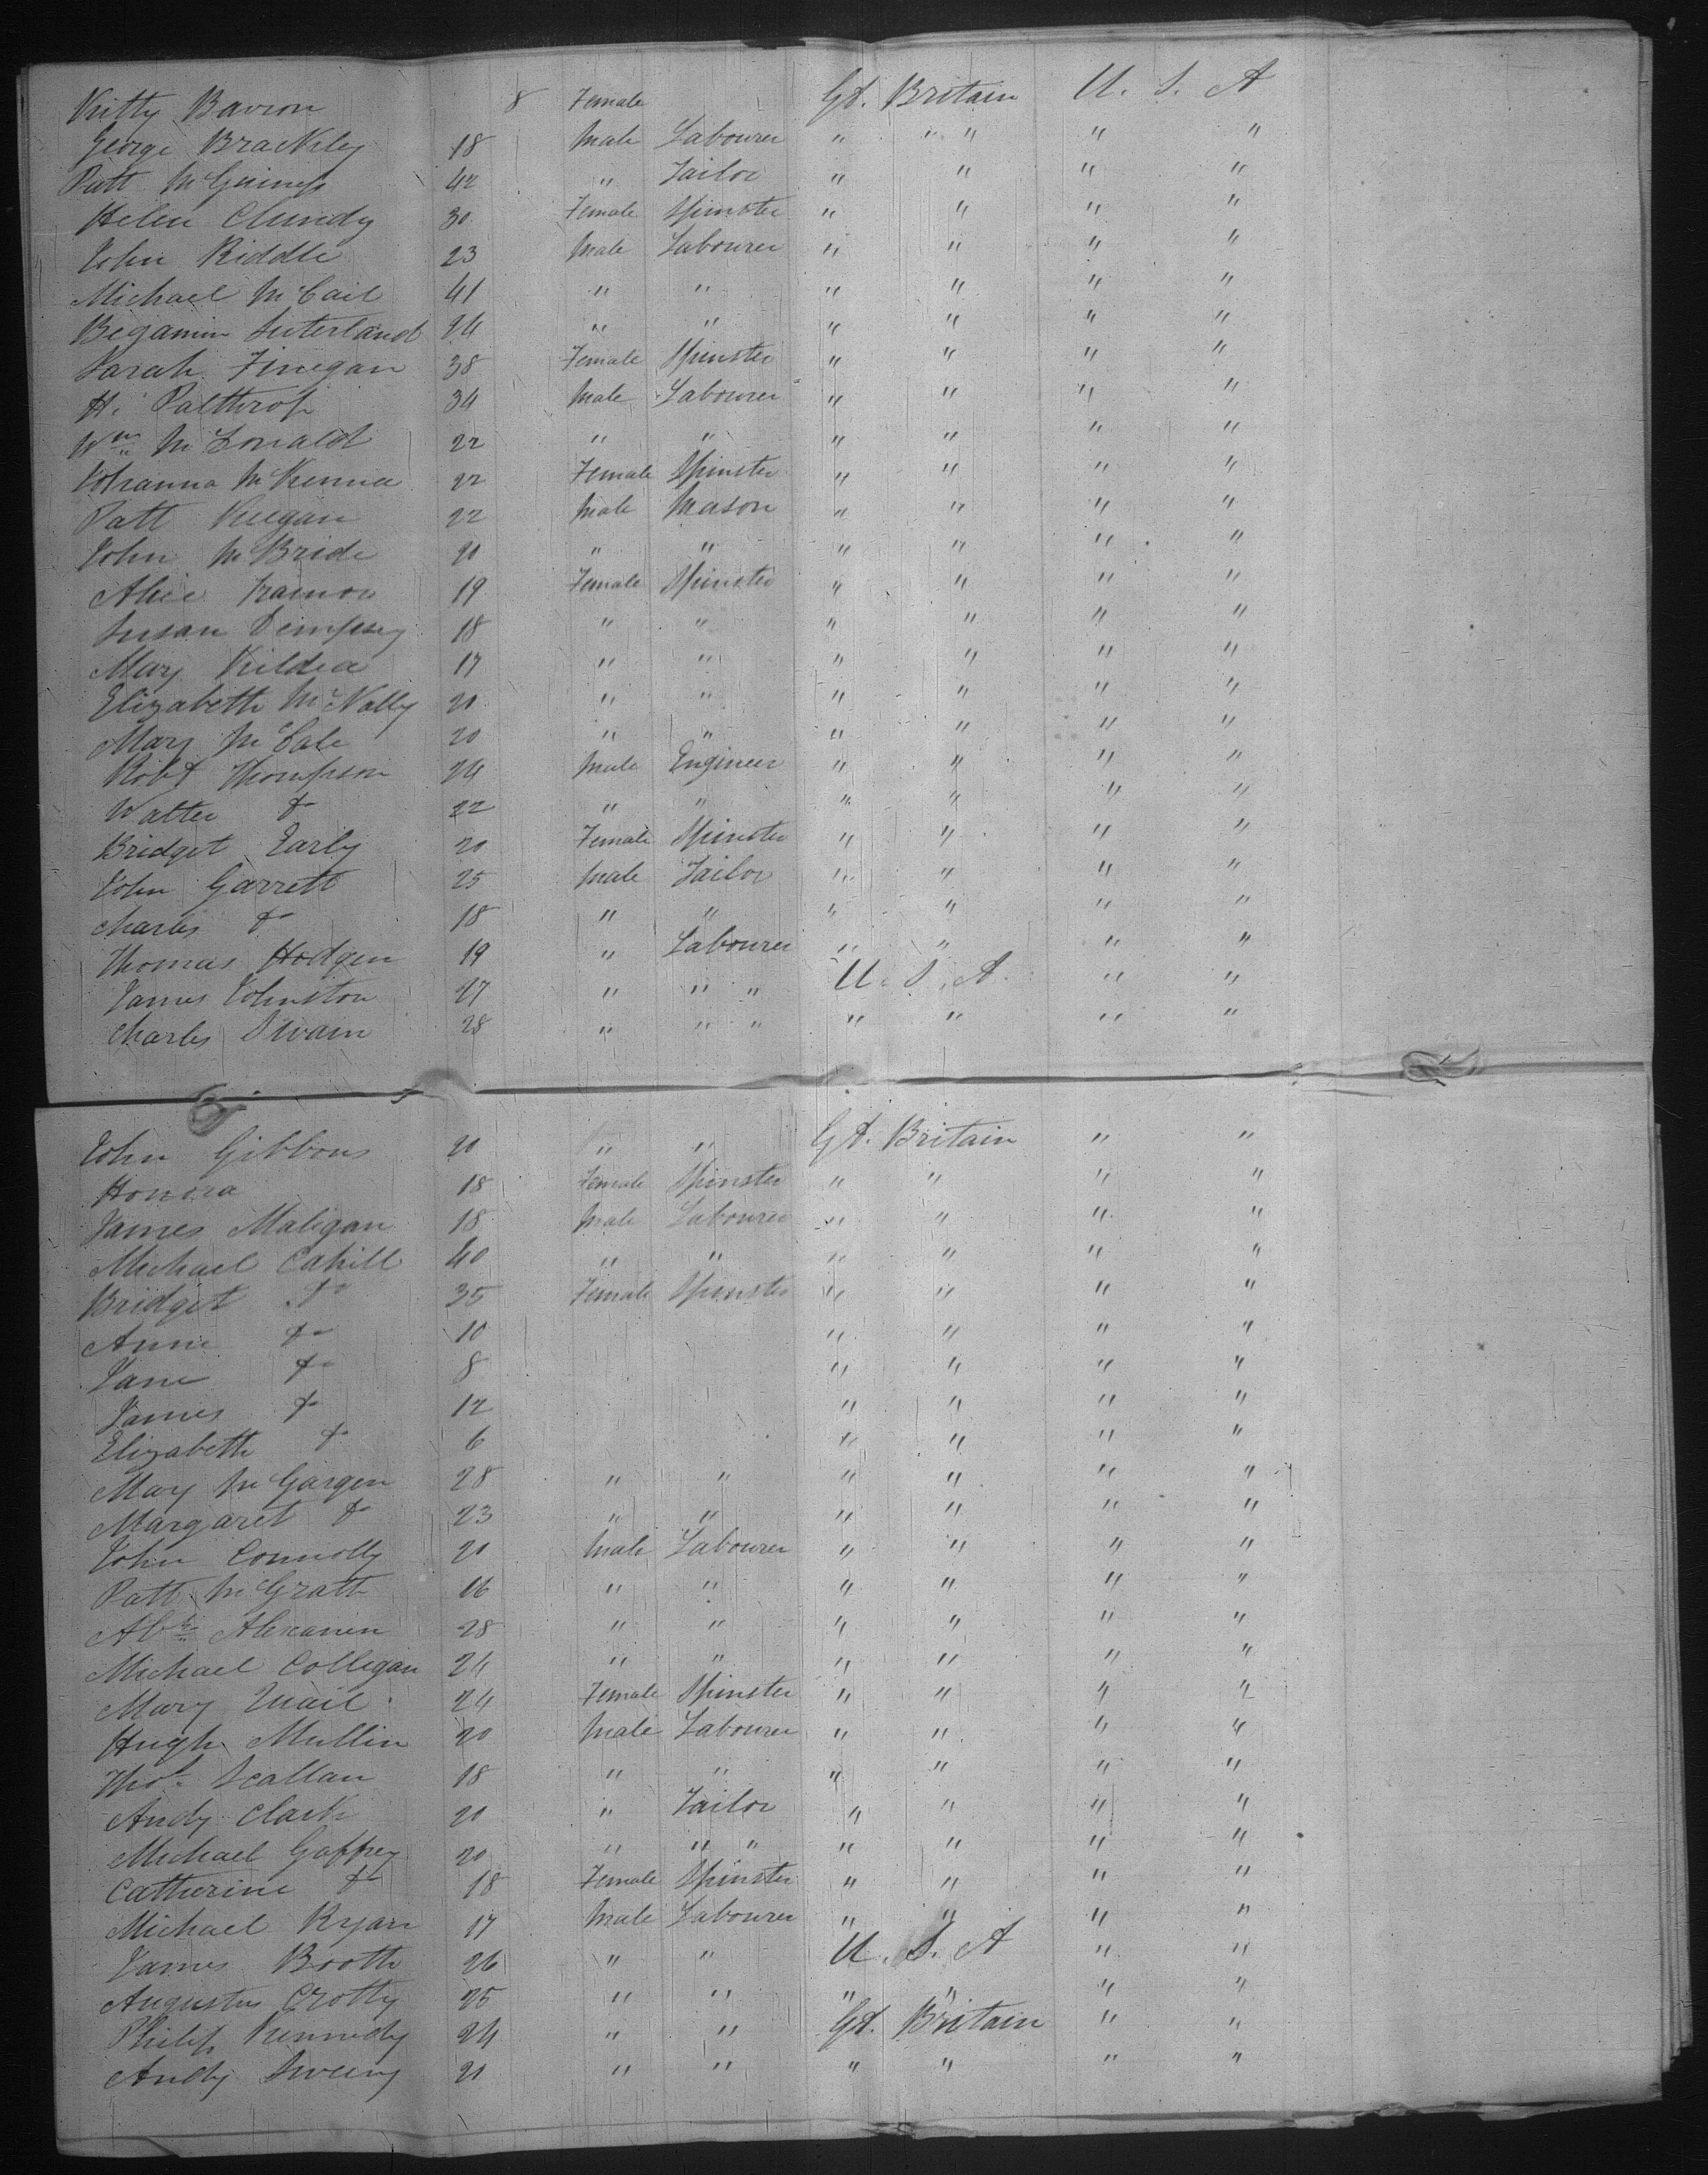 Kitty Bavron 8 Female Gt. Britain U. S. A
George Brackley 18 Male Labourer " " " " "
Patt McGuiness 42 " Tailor " " " "
Helen Clundy 30 Female Spinster " " " "
John Riddle 23 Male Labourer " " " "
Michael McCail 41 " " " " " "
Begamin Suterland 24 " " " " " "
Sarah Finegan 38 Female Spinster " " " "
H. Palthrop 34 Male Labourer " " " "
Wm McDonald 22 " " " " " "
Johanna McKenna 22 Female Spinster " " " "
Patt Keegan 22 Male Mason " " " "
John McBride 20 " " " " " "
Alice 19 Female Spinster " " " "
Susan Dempsey 18 " " " " " "
Mary Kildea 17 " " " " " "
Elizabeth McNally 20 " " " " " "
Mary McCale 20 " " " " " "
Robt Thompson 24 Male Engineer " " " "
Walter do 22 " " " " " "
Bridget Early 20 Female Spinster " " " "
John Garrett 25 Male Tailor " " " "
Charles do 18 " " " " " "
Thomas Hodgen 19 " Labourer " " " "
James Johnston 27 " " " U. S. A. " "
Charles Swain 28 " " " " " " "
John Gibbons 20 " " Gt. Britain " "
Honora 18 Female Spinster " " " "
James Maligan 18 Male Labourer " " " "
Michael Cahill 40 " " " " " "
Bridget do 35 Female Spinster " " " "
Anne do 10 " " " "
Jane do 8 " " " "
James do 12 " " " "
Elizabeth do 6 " " " "
Mary McGargen 28 " " " " " "
Margaret do 23 " " " " " "
John Connolly 20 Male Labourer " " " "
Patt McGratt 16 " " " " " "
Abm Alexanin 28 " " " " " "
Michael Colligan 24 " " " " " "
Mary Quail 24 Female Spinster " " " "
Hugh Mullin 20 Male Labourer " " " "
Thos Scallan 18 " " " " " "
Andy Clark 20 " Tailor " " " "
Michael Gaffney 20 " " " " " " "
Catherine do 18 Female Spinster " " " "
Michael Ryan 17 Male Labourer " " " "
James Booth 26 " " U. S. A " "
Augustus Crotty 25 " " " " " "
Philip Kennedy 24 " " Gt. Britain " "
Andy Sweeny 21 " " " " " "